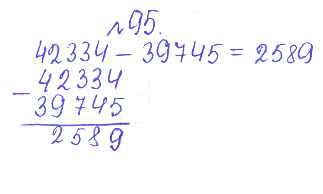 №95.
42334 - 39745 = 2589
- 42334
39745
2589